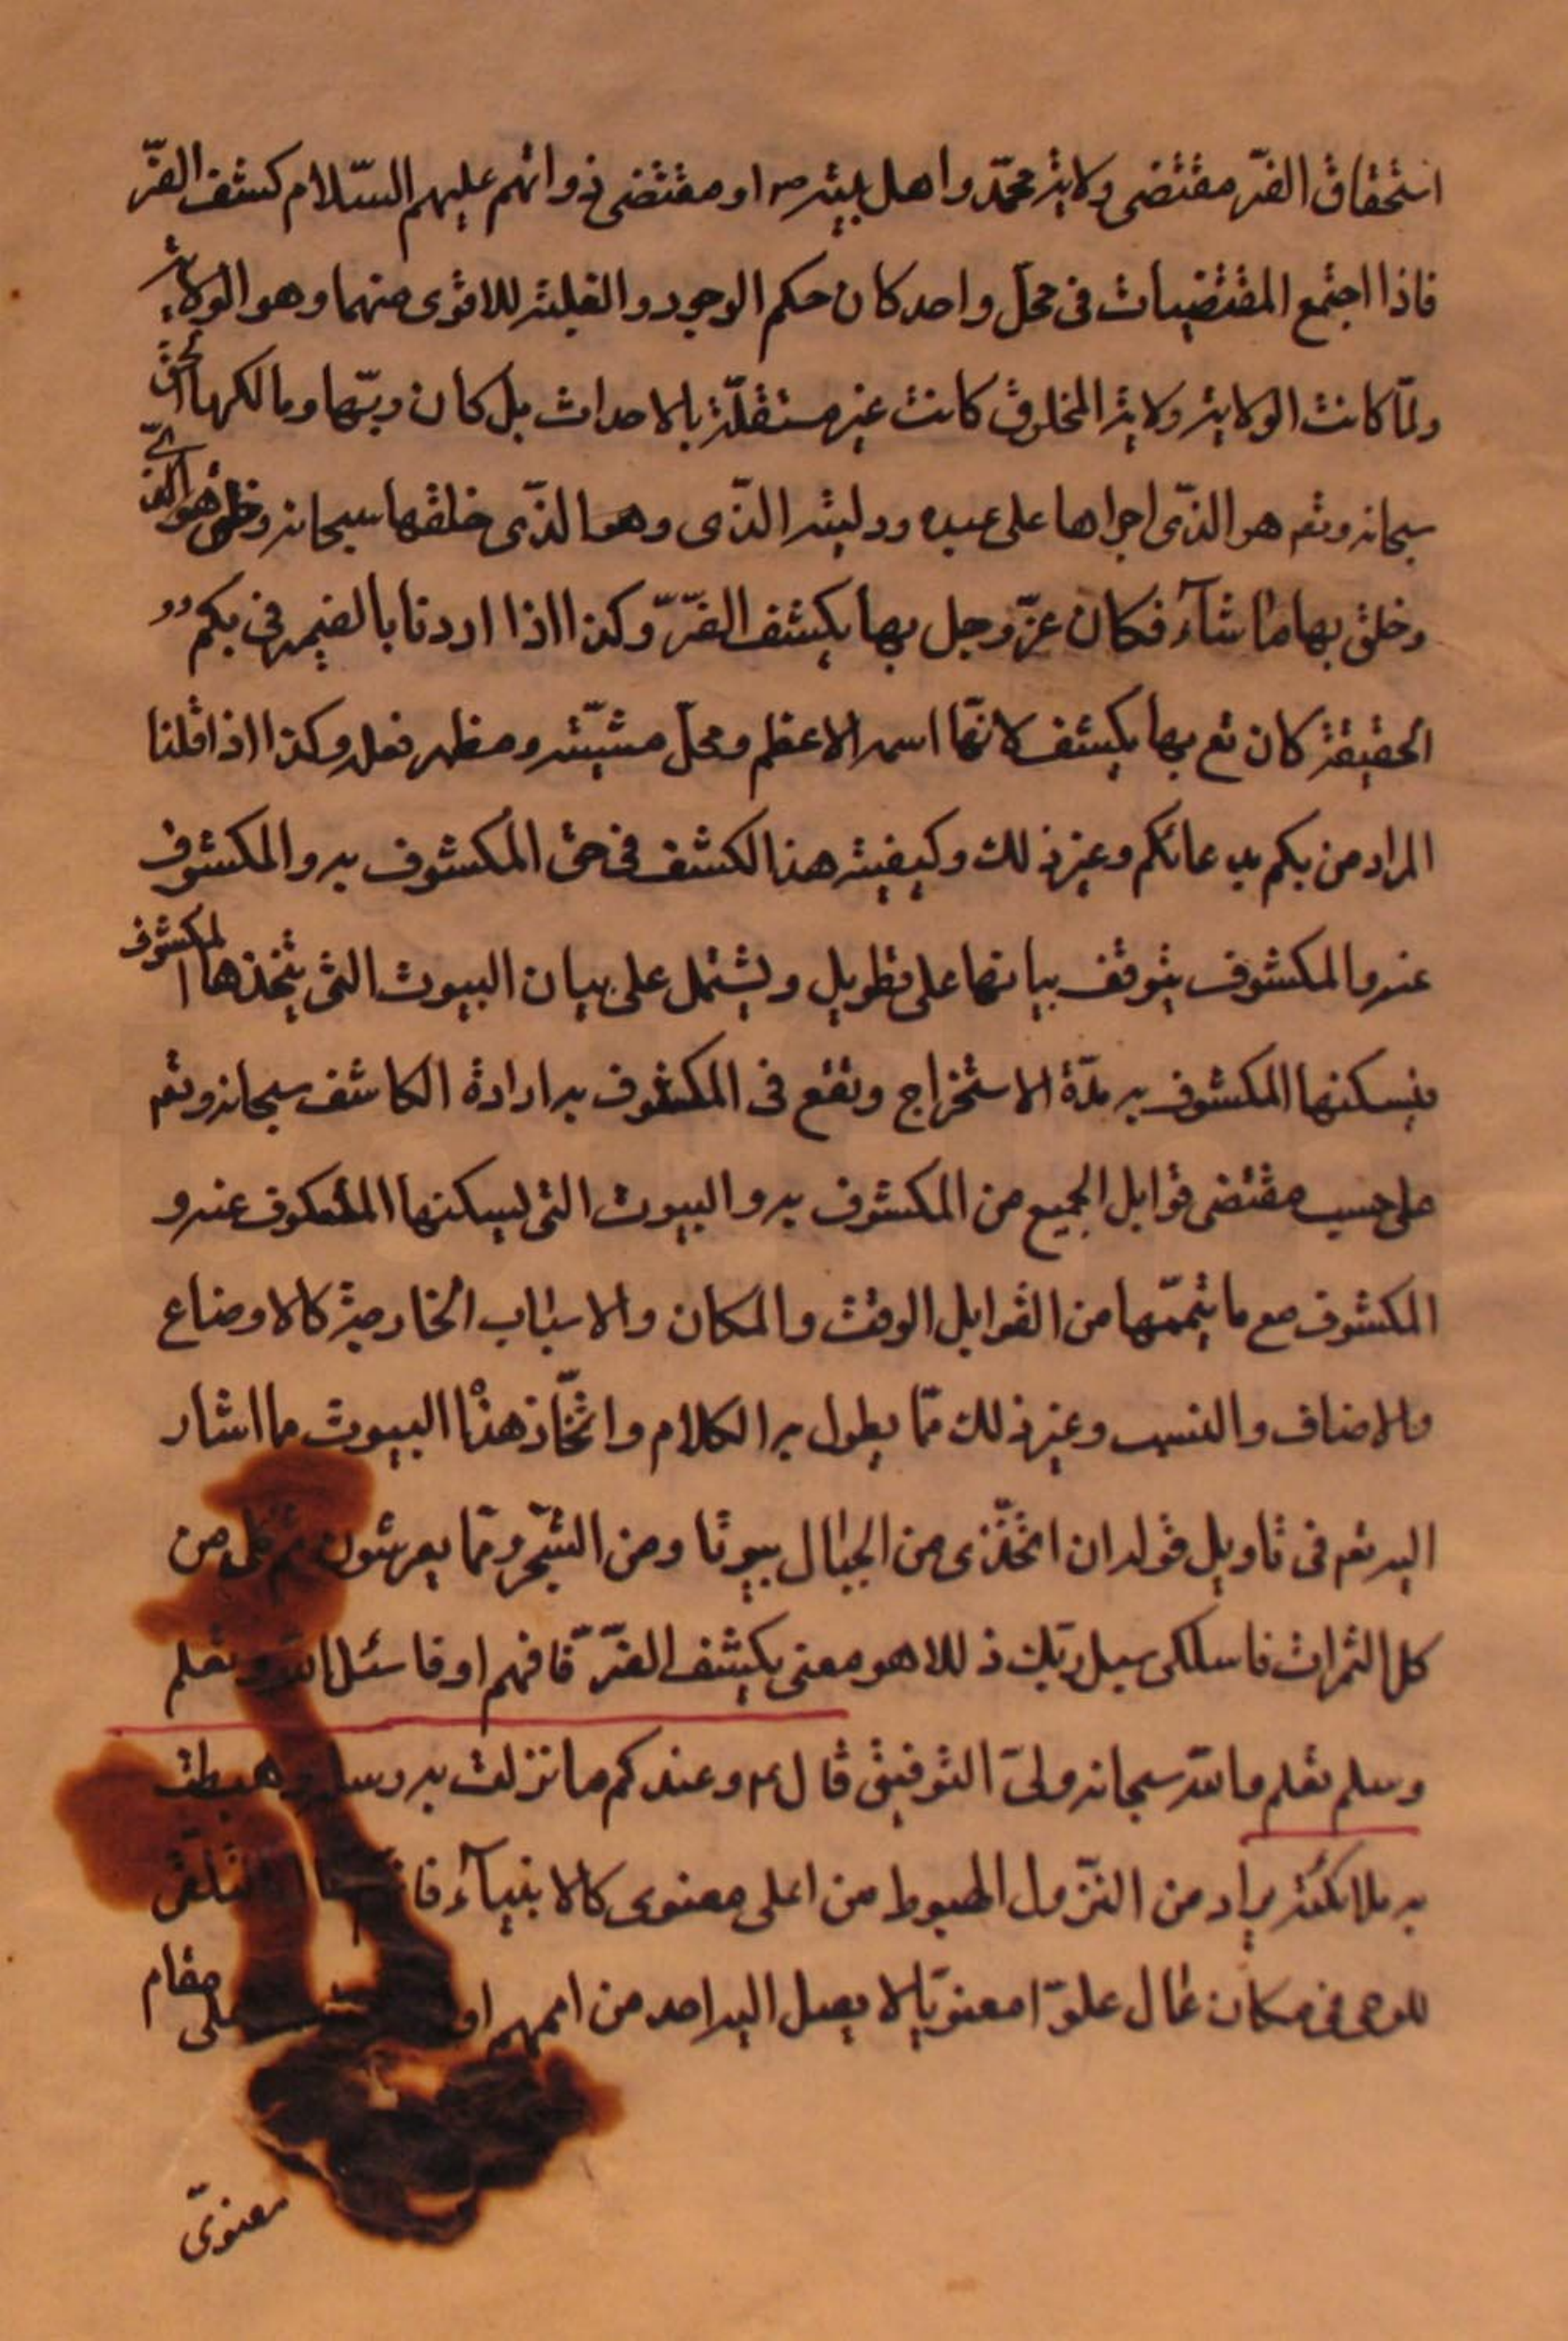 استحقاق الضّر مقتضى ولاية محمّد واهل بيته ص او مقتضى ذواتهم عليهم السّلام كشف الضّر
فاذا اجتمع المقتضيات فى محلّ واحد كان حكم الوجود والغلبة للاقوى منهما وهو الولاية
ولمّا كانت الولاية ولاية المخلوق كانت غير مستقلّة بالاحداث بل كان ربّها ومالكها الحق
سبحانه وتعم هو الذّى اجراها على عبده ووليّه الذّى وهو الذّى خلقها سبحانه وخلق
وخلق بها ما شآء فكان عزّ وجل بها يكشف الضّرّ وكذا اذا اردنا بالضمير فى بكم
الحقيقة كان تع بها يكشف لانّها اسمه الاعظم ومحلّ مشيّته ومظهر فعله وكذا اذا قلنا
المراد من بكم بدعائكم وغير ذلك وكيفية هذا الكشف فى حق المكشوف به والمكشوف
عنه والمكشوف يتوقف بيانها على تطويل ويشتمل على بيان البيوت التى يتخذها المكشوف
فيسكنها المكشوف به مدّة الاستخراج وتقع فى المكشوف به ارادة الكاشف سبحانه وتعم
على حسب مقتضى قوابل الجميع من المكشوف به والبيوت التى يسكنها المكشوف عنه و
المكشوف مع ما يتممّها من القوابل الوقت والمكان والاسباب الخارجية كالاوضاع
والاضاف والنسب وغير ذلك ممّا يطول به الكلام واتّخاذ هذا البيوت ما اشار
اليه تعم فى تاويل قوله ان اتخذى من الجبال بيوتا ومن الشّجر وممّا يعرشون ثم كلى من
كل الثمرات فاسلكى سبل ربّك ذللا هو معنى يكشف الضّرّ فافهم او فاسئل الله وتعلم
وسلم تعلم والله سبحانه ولىّ التوفيق قال ع وعندكم ما نزلت به رسله وهبطت
به ملائكته يراد من النزول الهبوط من اعلى معنوى كالانبيآء التلقى
للوحى فى مكان عال علوّا معنويّا لا يصل اليه احد من اممهم او على مقام
معنوىّ